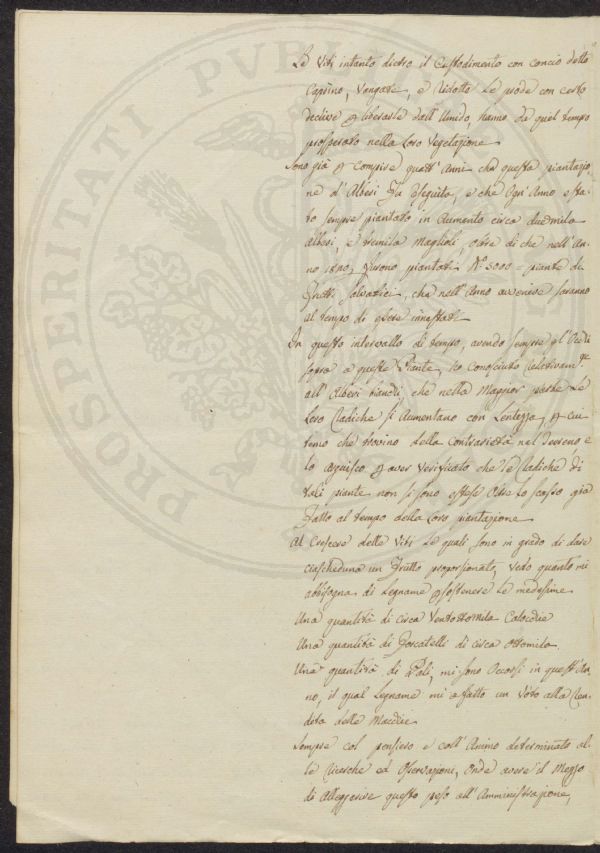 Le Viti intanto dietro il Custodimento con concio detto
Caprino, Vangate, e ridotte le prode con certo
declive p liberarle dall'Umido, hanno da quel tempo
prosperato nella loro Vegetazione
Sono già p compire quatt'Anni che questa piantazio-
ne d'Alberi fu eseguita, e che ogn'Anno è sta-
to sempre piantato in aumento circa duemila
Alberi, e tremila Maglioli, oltre di che nell'An-
no furono piantati N° 5000 = piante di
Frutti salvatici, che nell'Anno avvenire saranno
al tempo di essere innestati
In questo intervallo di tempo, avendo sempre gl'Occhi
sopra a queste Piante, ho conosciuto
all'Alberi che nella Maggior parte le
loro Radiche si aumentano con Lentezza, e
temo che trovino della contrarietà nel terreno e
lo p aver Verificato che le Radiche di
tali piante non si sono estese oltre lo scasso già
fatto al tempo della loro piantazione
Al Crescere delle Viti le quali sono in grado di dare
ciascheduna un Frutto proporzionato, Vedo quanto mi
abbisogna di Legname p sostenere le medesime
Una quantità di circa Ventottomila Colocchie
Una quantità di Forcatelli di circa Ottomila
Una quantità di Pali, mi sono Occorsi in quest'An-
no, il qual Legname mi a fatto un Voto alla Ren-
dita delle Macchie
Sempre col pensiero e coll'Animo determinato al-
le Ricerche ed Osservazioni, onde avere il Mezzo
di Alleggerire questo peso all'Amministrazione,
PROSPERITATI PUBLICAE